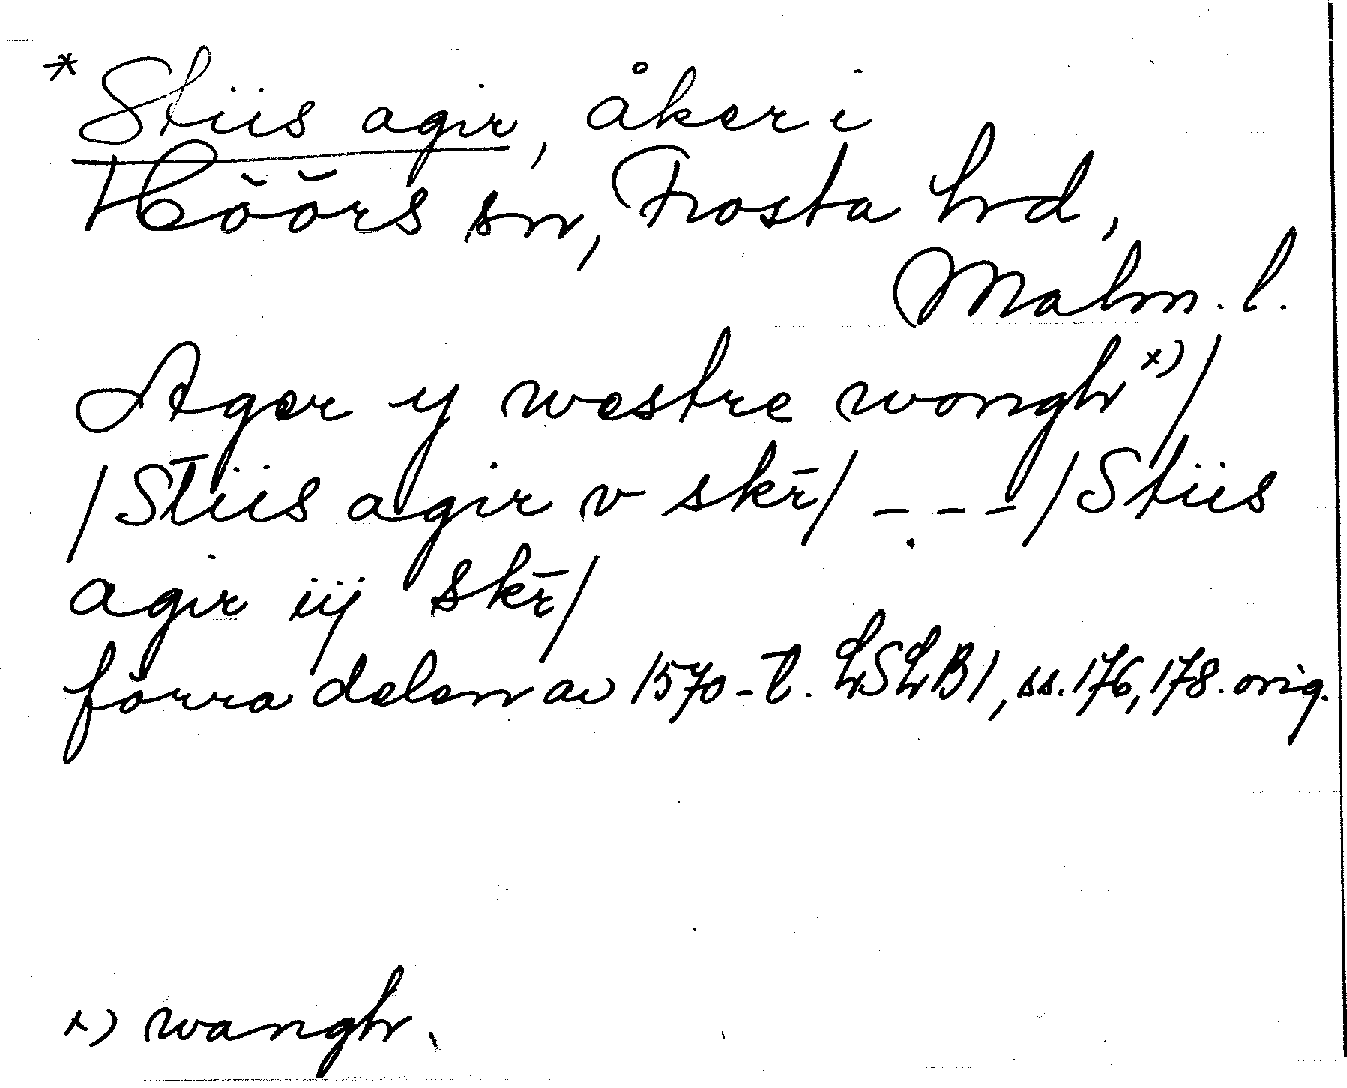 *Stiis agir, åker i
Höörs sn, Frosta hrd,
Malm. l.
Ager y westre wongh x)/
/Stiis agir v skr̄/ _ _ _ /Stiis
agir iij skr̄/
förra delen av 1570-t. LSLB1, ss. 176, 178. orig.
x) wangh.